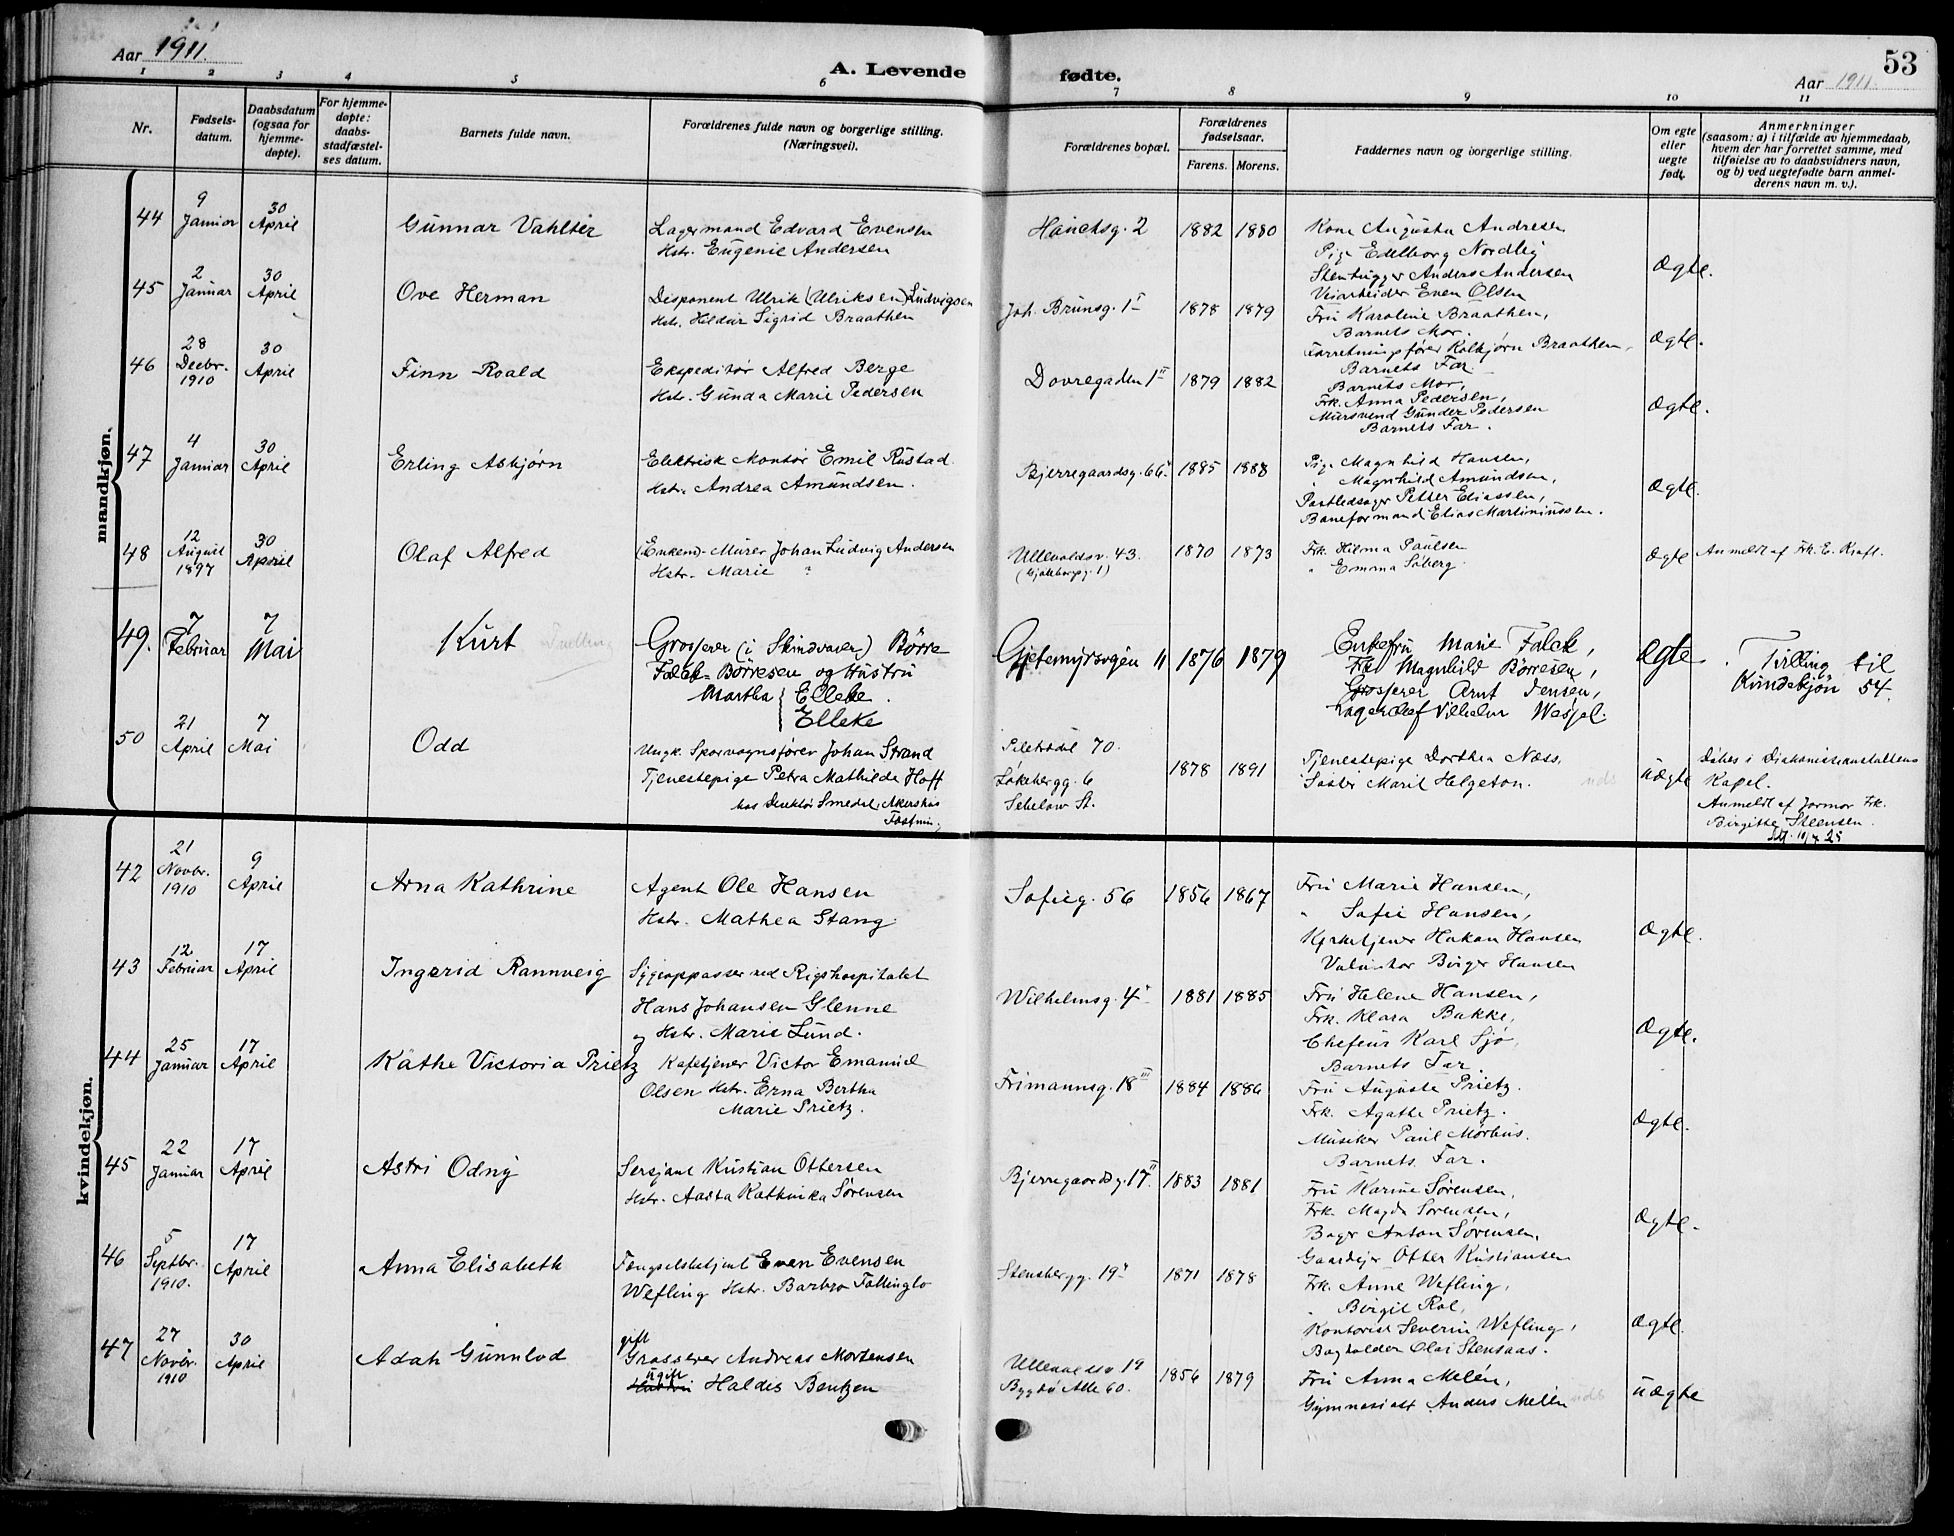 Aar 1911.
A. Levende fødte.
53
Aar 1911.
1 2 3 4 5 6 7 8 9 10 11
Nr.
Fødsels-
datum.
Daabsdatum
(ogsaa for
hjemme-
døpte).
For hjemme-
døpte:
daabs-
stadfæstel-
ses datum.
Barnets fulde navn.
Forældrenes fulde navn og borgerlige stilling.
(Næringsvei).
Forældrenes bopæl.
Forældrenes
fødselsaar.
Farens. Morens.
Faddernes navn og borgerlige stilling.
Om egte
eller
uegte
født.
Anmerkninger
(saasom: a) i tilfælde av hjemmedaab,
hvem der har forrettet samme, med
tilføielse av to daabsvidners navn,
og b) ved uegtefødte barn anmel-
derens navn m. v.).
mandkjøn.
44
9
Januar
30
April
Gunnar Vahlter
Lagermand Edvard Evensen
Hstr. Eugenie Andersen
1882 1880
Kone Augusta Andresen
Pige Edelborg Nordby
Stenhugger Anders Andersen
Veiarbeider Even Olsen
Ægte.
45
2
Januar
30
April
Ove Herman
Disponent Ulrik (Ulriksen) Ludvigsen
Hstr. Hildur Sigrid Braathen
Joh. Brunsg. 1 I
1878 1879
Fru Karoline Braathen,
Barnets Mor.
Forretningsfører Kolbjørn Braathen,
Barnets Far.
Ægte.
46
28
Decbr.
1910
30
April
Finn Roald
Ekspeditør Alfred Berge
Hstr. Gunda Marie Pedersen
Dovregaden 1 II
1879 1882
Barnets Mor,
Frk. Anna Pedersen,
Mursvend Gunder Pedersen
Barnets Far.
Ægte.
47
4
Januar
30
April
Erling Asbjørn
Elektrisk Montør Emil Rustad
Hstr. Andrea Amundsen.
Bjerregaardsg. 66 I
1885 1888
Pige Magnhild Hansen,
" Magnhild Amundsen,
Postledsager Petter Eliassen,
Baneformand Elias Martiniussen.
Ægte.
48
12
August
1897
30
April
Olaf Alfred
(Enkem)- Murer Johan Ludvig Andersen
Hstr. Marie "
Ullevoldsv. 43.
1870 1873
Frk. Hilma Paulsen
" Emma Søberg.
Ægte
Anmeldt af Frk. E. Kraft.
49.
7
Februar
7
Mai
Kurt
Grosserer (i Skindvarer) Børre
Falck-Børresen og Hustru
Martha { Elleke.
Elleke
Gjetemyrsveien 11
1876 1879
Enkefru Marie Falck,
Frk Magnhild Børresen,
Grosserer Arnt Jensen,
Lagerchef Vilhelm Wessel.
Ægte.
Tvilling til
Kvindekjøn 54
50
21
April
7
Mai
Odd
Ungk. Sporvognsfører Johan Strand
Tjenestepige Petra Mathilde Hoff
hos Direktør Smedal, Akershus
Pilestædet 70.
Løkkebergg. 6
1878 1891
Tjenestepige Dorthea Næss.
Søster Marit Helgeton.
uægte
Døbes i Diakonisseanstaltens
Kapel.
Anmeldt af Jormor Frk.
Birgitte Steensen.
kvindekjøn.
42
21
Novbr.
1910
9
April
Arna Kathrine
Agent Ole Hansen
Hstr. Mathea Stang.
Sofieg. 56
1856 1867
Fru Marie Hansen,
" Sofie Hansen,
Kirketjener Hakon Hansen
Volontør Birger Hansen
Ægte.
43
12
Februar
17
April
Ingerid Rannveig
Sygeoppasser ved Rigshospitalet
Hans Johansen Glenne
og Hstr. Marie Lund.
Wilhelmsg. 4 I
1881 1885
Fru Helene Hansen,
Frk. Klara Bakke,
Chefeur Karl Sjø,
Barnets Far.
Ægte.
44
25
Januar
17
April
Käthe Victoria Prietz
Kafetjener Victor Emanuel
Olsen Hstr. Erna Bertha
Marie Prietz.
Frimannsg. 18 III
1884 1886
Fru Auguste Prietz.
Frk. Agathe Prietz.
Musiker Paul Mørhus.
Barnets Far.
Ægte.
45
22
Januar
17
April
Astri Odny
Sersjant Kristian Ottersen
Hstr. Aasta Kathinka Sørensen
Bjerregaardsg. 17 II
1883 1881
Fru Karine Sørensen,
Frk. Magda Sørensen,
Bager Anton Sørensen,
Gaardejer Otter Kristiansen
Ægte.
46
5
Septbr.
1910.
17
April
Anna Elisabeth
Fængselsbetjent Even Evensen
Wefling Hstr. Barbro Fallinglo
Stensbergg. 19 I
1871 1878
Frk. Anne Wefling,
" Birgit Rol,
Kontorist Severin Wefling,
Bogholder Olai Stensaas.
Ægte.
47
27
Novbr.
1910
30
April
Adah Gunnlod
gift
Grosserer Andreas Mortensen
ugift
Haldis Bentzen
Ullevoldsv. 19
Bygdø Alle 60.
1856 1879
Fru Anna Melén,
Gymnasiast Anders Melén
uægte